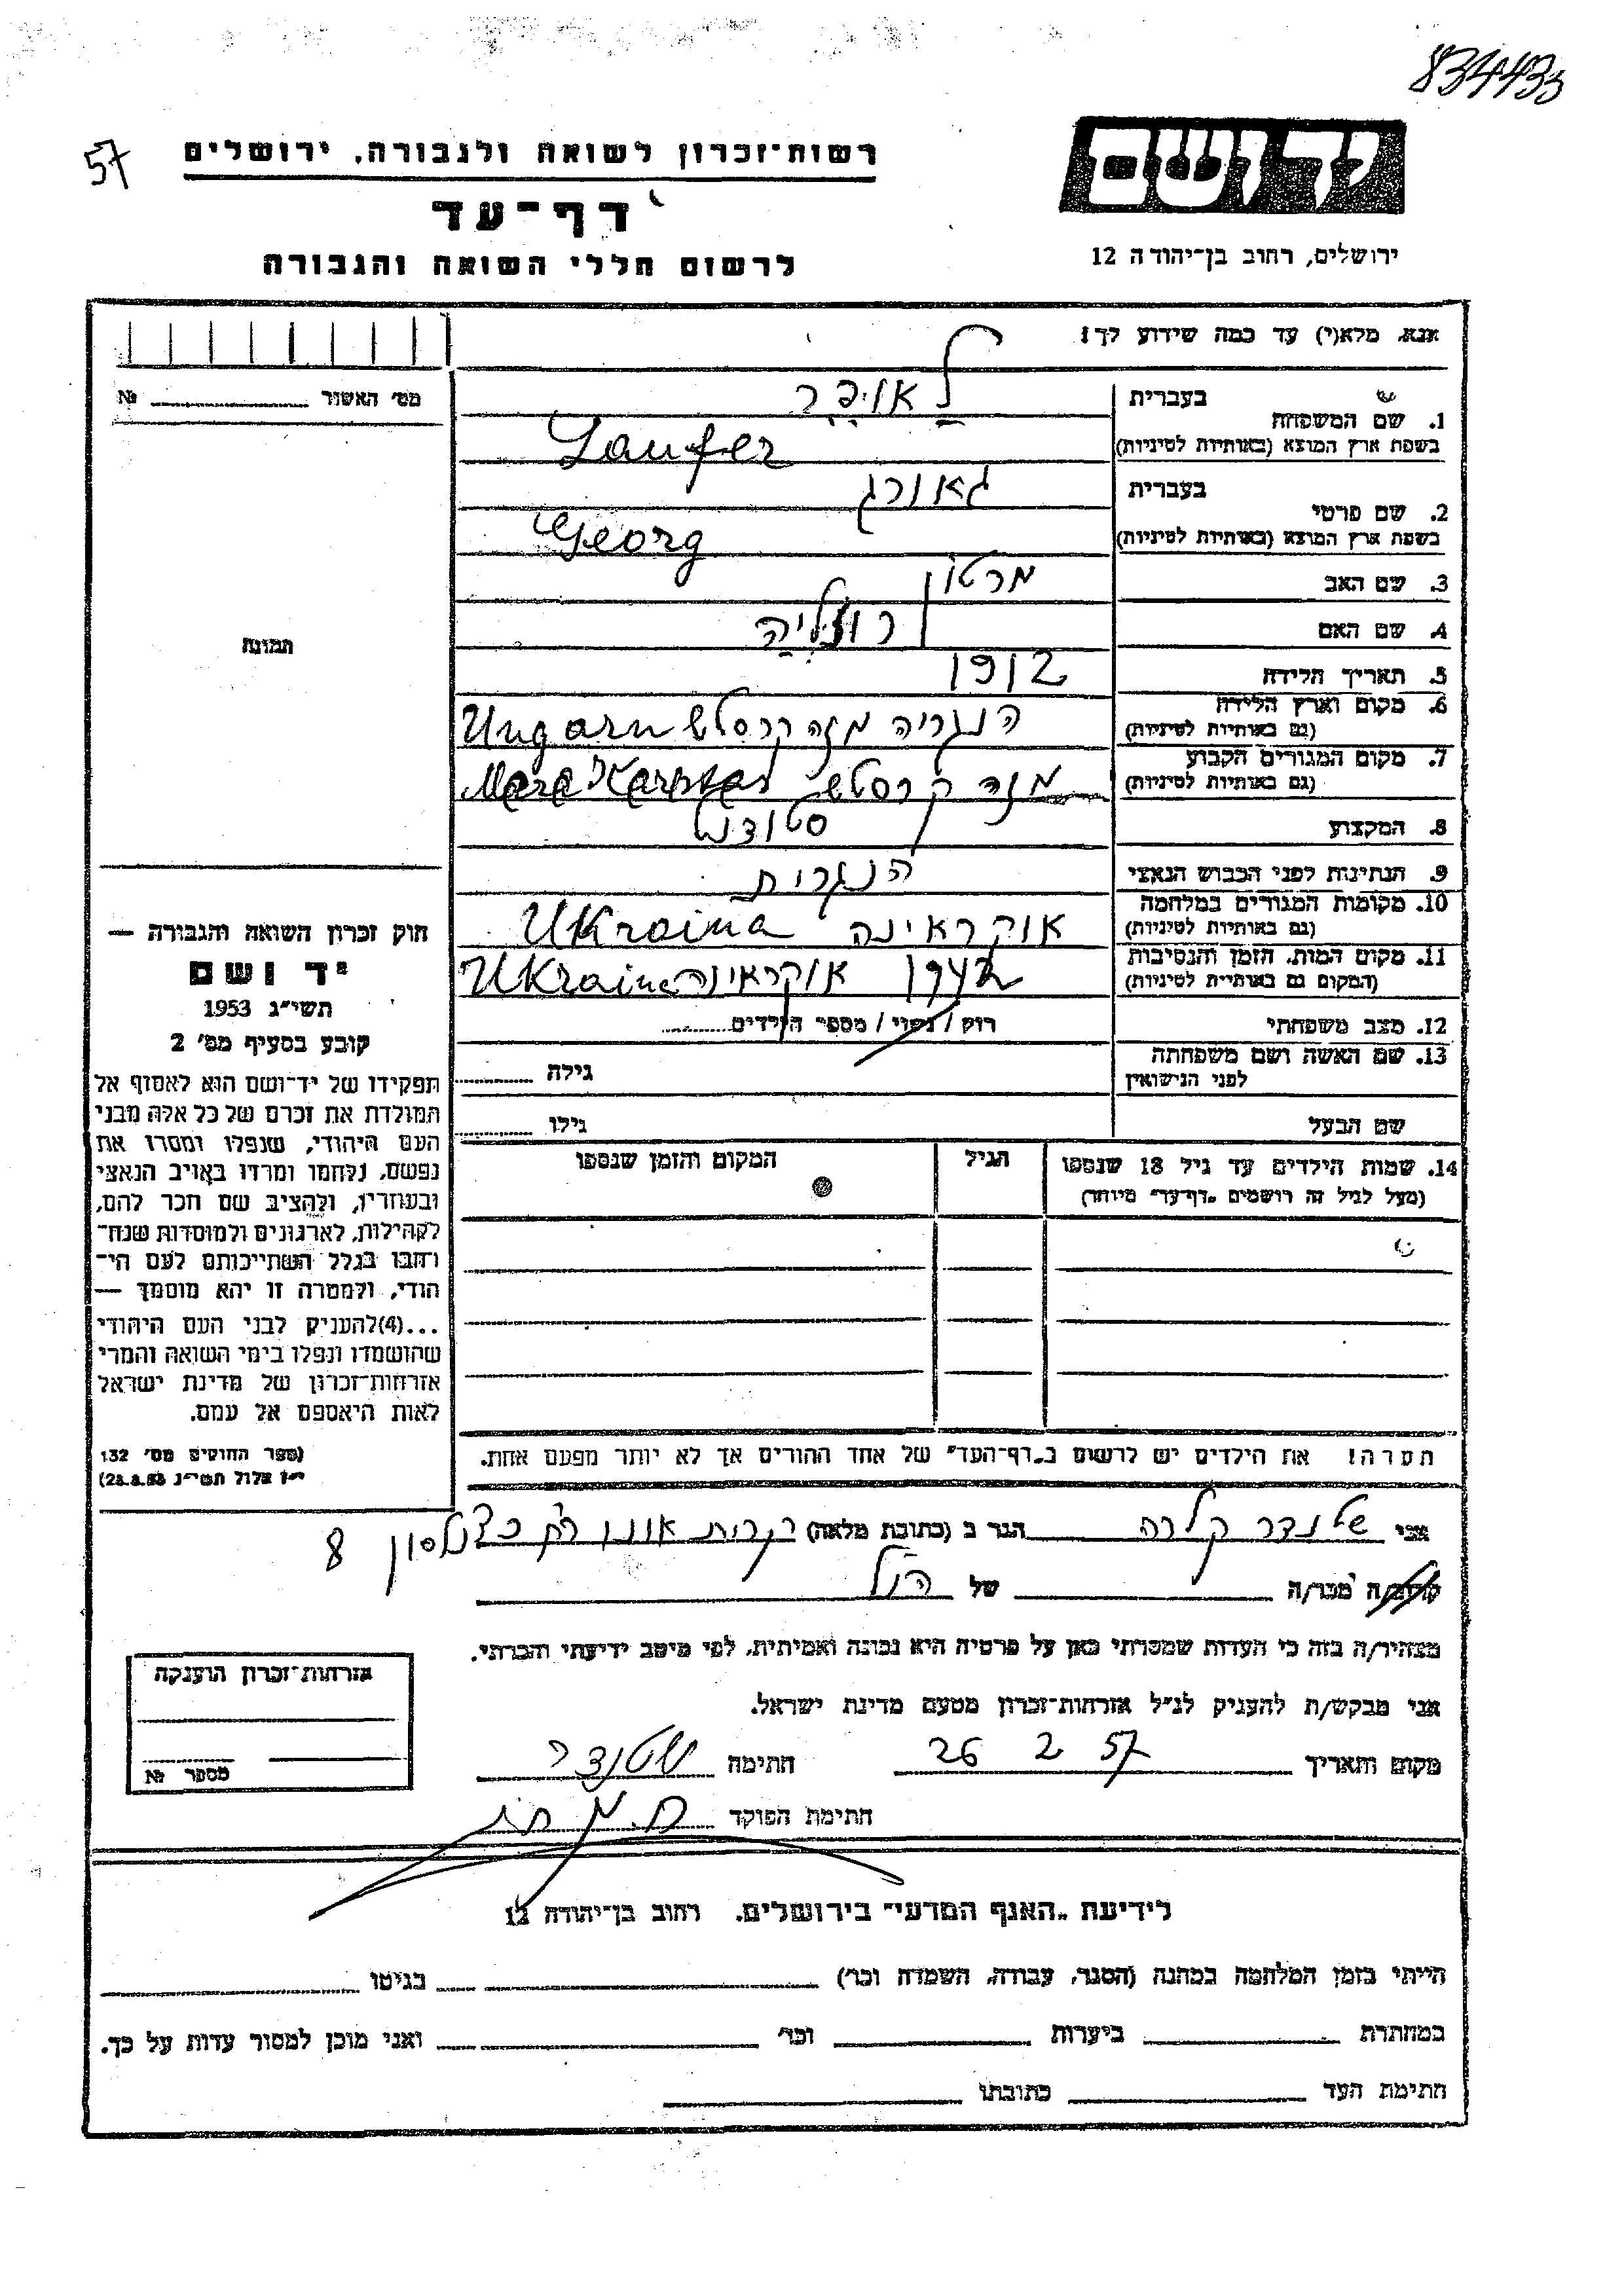 834433
57
רשות־זכרון לשואה ולגבורה, ירושלים
יד ושם
דף־עד
ירושלים, רחוב בן־יהודה 12
לרשום חללי השואה והגבורה
אנא, מלא(י) עד כמה שידוע לך:
מס' האשור № 
1. שם המשפחה
בעברית
לאופר
בשפת ארץ המוצא (באותיות לטיניות)
Laufer
2. שם פרטי
בעברית
גאורג
בשפת ארץ המוצא (באותיות לטיניות)
Georg
3. שם האב
מרטון
4. שם האם
רוזליה
תמונה
5. תאריך הלידה
1912
6. מקום וארץ הלידה
(גם באותיות לטיניות)
הנגריה מזה קרסטש Ungarn
7. מקום המגורים הקבוע
(גם באותיות לטיניות)
מזה קרסטש
8. המקצוע
סטודנט
9. הנתינות לפני הכבוש הנאצי
הנגרית
10. מקומות המגורים במלחמה
(גם באותיות לטיניות)
אוקראינה Ukraina
11. מקום המות, הזמן והנסיבות
(המקום גם באותיות לטיניות)
1942 אוקראינה Ukraina
12. מצב משפחתי
רוק / נשוי / מספר הילדים
13. שם האשה ושם משפחתה
לפני הנישואין
גילה
שם הבעל
גילו
14. שמות הילדים עד גיל 18 שנספו
(מעל לגיל זה רושמים "דף־עד" מיוחד)
הגיל
המקום והזמן שנספו
חוק זכרון השואה והגבורה —
יד ושם
תשי"ג 1953
קובע בסעיף מס' 2
תפקידו של יד־ושם הוא לאסוף אל
המולדת את זכרם של כל אלה מבני
העם היהודי, שנפלו ומסרו את
נפשם, נלחמו ומרדו באויב הנאצי
ובעוזריו, ולהציב שם וזכר להם,
לקהילות, לארגונים ולמוסדות שנח־
רבו בגלל השתייכותם לעם הי־
הודי, ולמטרה זו יהא מוסמך —
...(4)להעניק לבני העם היהודי
שהושמדו ונפלו בימי השואה והמרי
אזרחות־זכרון של מדינת ישראל
לאות היאספם אל עמם.
(ספר החוקים מס' 132,
י"ז אלול תשי"ג 28.8.53)
הערה! את הילדים יש לרשום ב"דף־העד" של אחד ההורים אך לא יותר מפעם אחת.
אני
קלרה הגר ב (כתובת מלאה) קרית אונו
8
קרוב/ה מכר/ה
של הנ"ל
מצהיר/ה בזה כי העדות שמסרתי כאן על פרטיה היא נכונה ואמיתית, לפי מיטב ידיעתי והכרתי.
אני מבקש/ת להעניק לנ"ל אזרחות־זכרון מטעם מדינת ישראל.
מקום ותאריך 26 2 57 חתימה
חתימת הפוקד
אזרחות־זכרון הוענקה
מספר №
לידיעת "האגף המדעי" בירושלים, רחוב בן־יהודה 12
הייתי בזמן המלחמה במחנה (הסגר, עבודה, השמדה וכו') בגיטו
במחתרת ביערות וכו' ואני מוכן למסור עדות על כך.
חתימת העד כתובתו